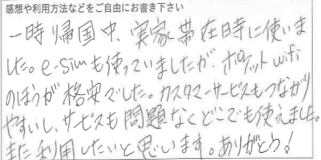 感想や利用方法などをご自由にお書き下さい
一時帰国中、実家滞在時に使いま
した。e-simも使っていましたが、ポケットwifi
のほうが格安でした。カスタマーサービスもつながり
やすいし、サービスも問題なくどこでも使えました。
また利用したいと思います。ありがとう!